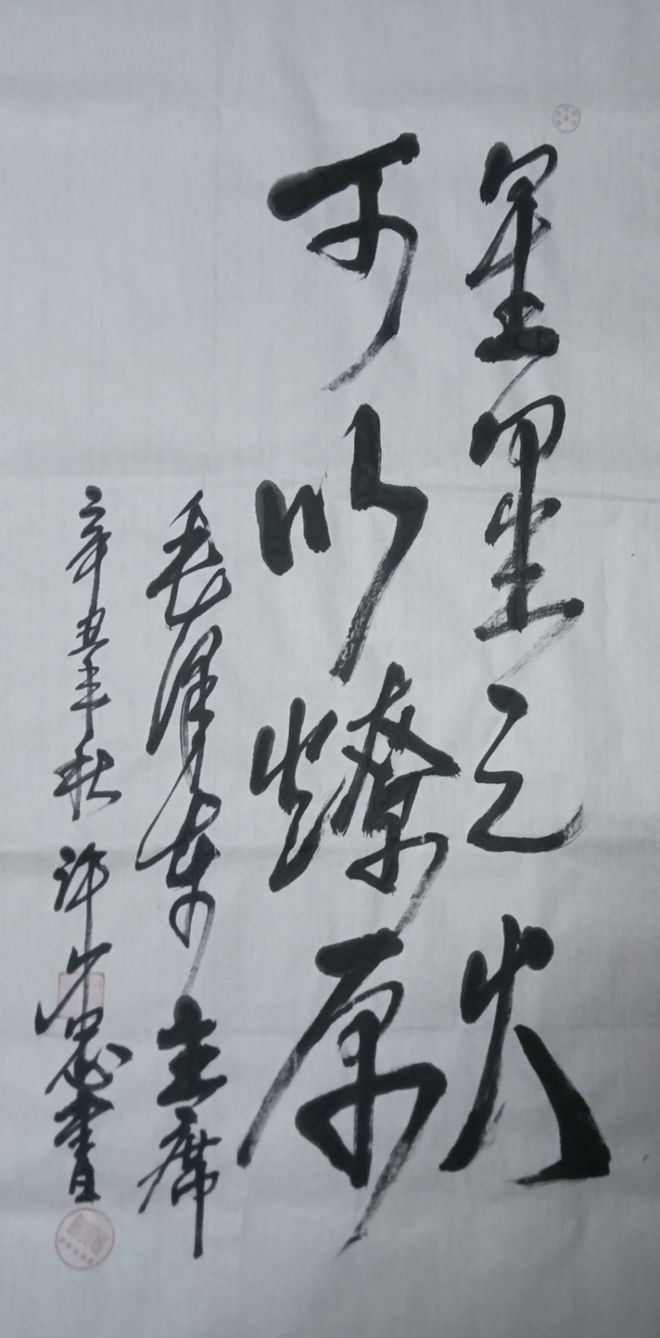 星星之火
可以燎原
毛泽东主席
辛丑年秋 许 書